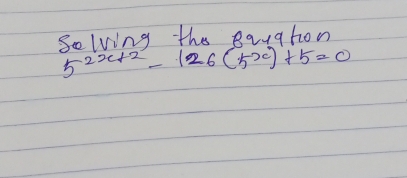 Solving the equation
5^{2x+2} - 126(5^x) + 5 = 0